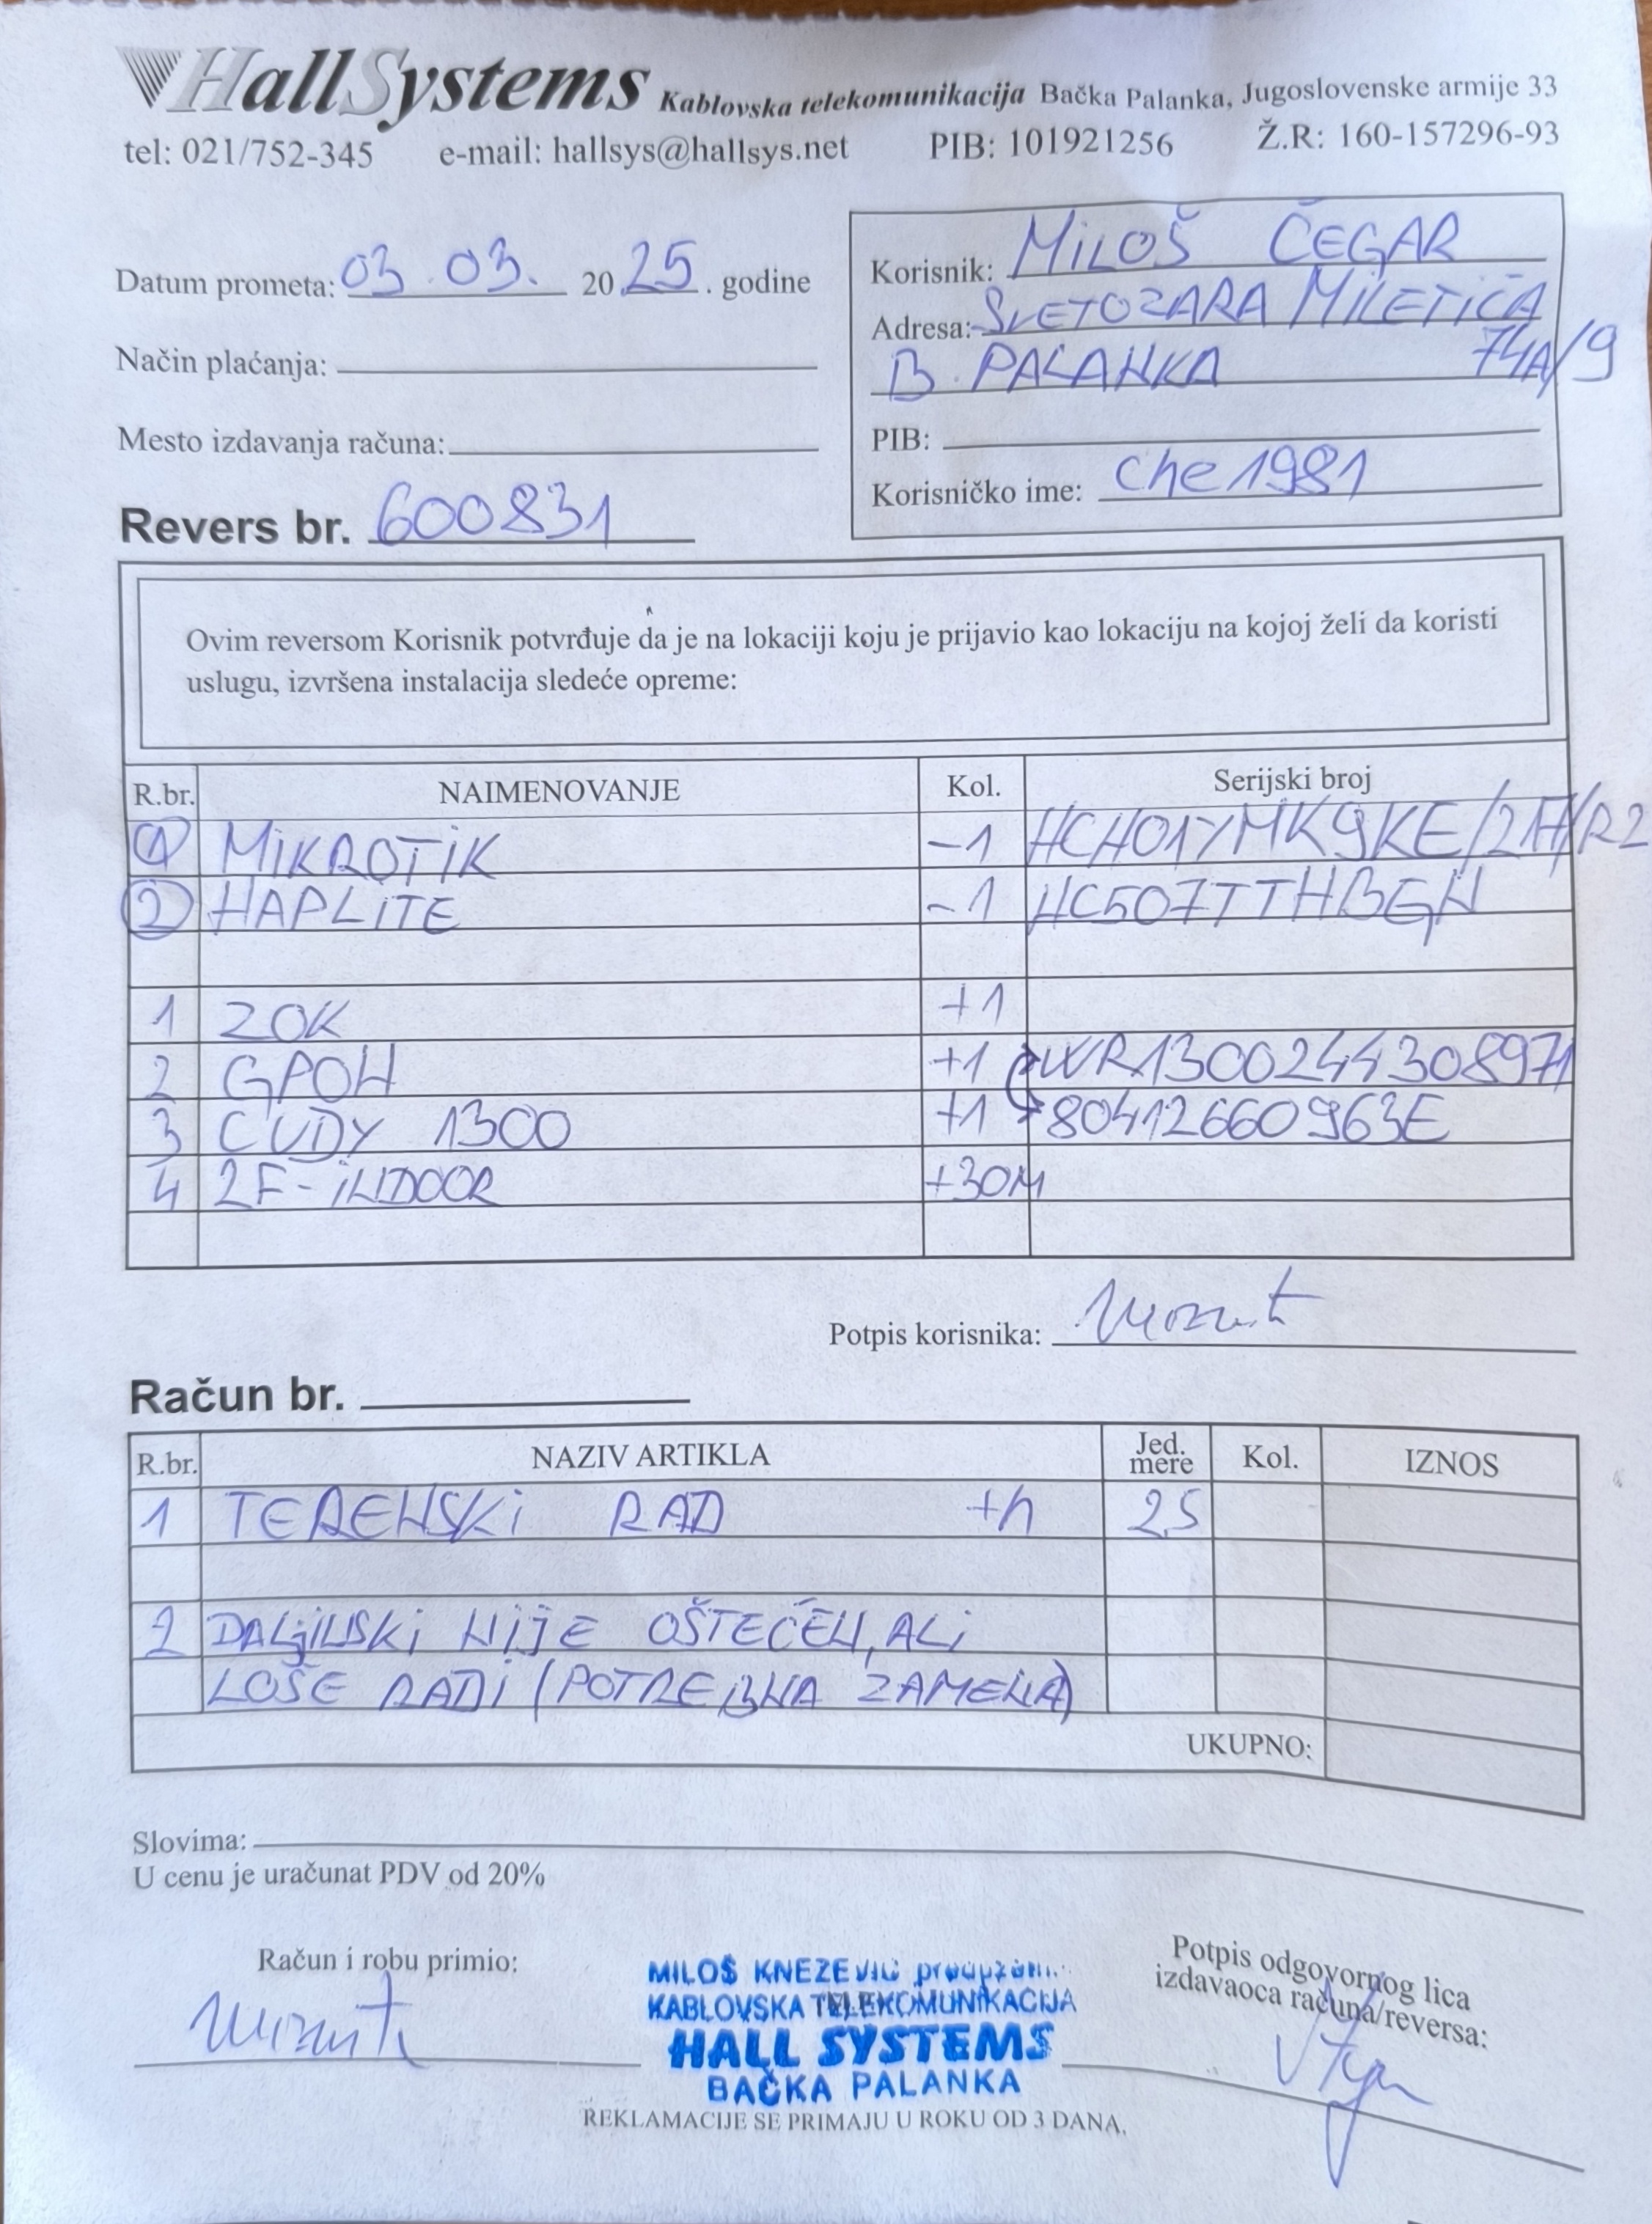 HallSystems Kablovska telekomunikacija Bačka Palanka, Jugoslovenske armije 33
tel: 021/752-345 e-mail: hallsys@hallsys.net PIB: 101921256 Ž.R: 160-157296-93
Datum prometa: 03.03. 2025. godine
Način plaćanja:
Mesto izdavanja računa:
Revers br. 600831
Korisnik: MILOŠ ČEGAR
Adresa: SVETOZARA MILETIĆA
B. PALANKA 74A/9
PIB:
Korisničko ime: che1981
Ovim reversom Korisnik potvrđuje da je na lokaciji koju je prijavio kao lokaciju na kojoj želi da koristi
uslugu, izvršena instalacija sledeće opreme:
R.br. NAIMENOVANJE Kol. Serijski broj
1 MIKROTIK -1 HCH01YMK9KE/217/R2
2 HAPLITE -1 HC507TTHBGH
1 ZOK +1
2 GPON +1 WR1300244308971
3 CUDY 1300 +1 80412660963E
4 2F-INDOOR +30M
Potpis korisnika:
Račun br.
R.br. NAZIV ARTIKLA Jed. mere Kol. IZNOS
1 TERENSKI RAD +h 2,5
2 DALJINSKI NIJE OŠTEĆEN, ALI
LOŠE RADI (POTREBNA ZAMENA)
UKUPNO:
Slovima:
U cenu je uračunat PDV od 20%
Račun i robu primio:
MILOŠ KNEZEVIĆ preduzetn..
KABLOVSKA TELEKOMUNIKACIJA
HALL SYSTEMS
BAČKA PALANKA
Potpis odgovornog lica
izdavaoca računa/reversa:
REKLAMACIJE SE PRIMAJU U ROKU OD 3 DANA.